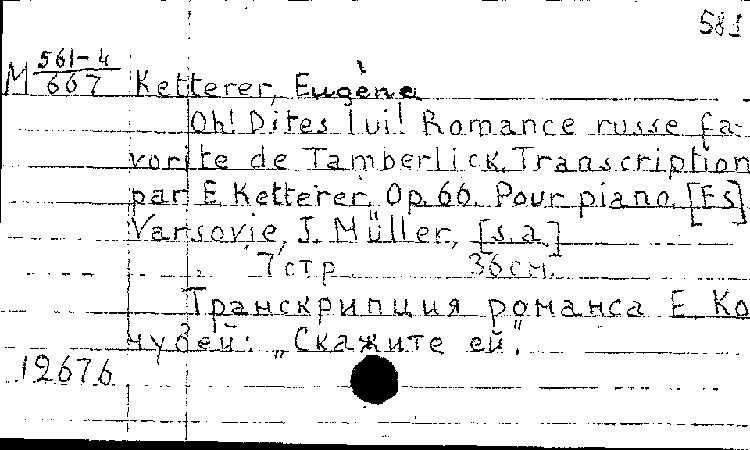 581
M 561-4/667 Ketterer, Eugène
Oh! Dites lui! Romance russe fa-
vorite de Tamberlick. Transcription
par E. Ketterer. Op. 66. Pour piano [Es]
Varsovie, J. Müller, [s.a.]
7 стр. 36 см.
Транскрипция романса Е. Ко
чубей: „Скажите ей".
12676